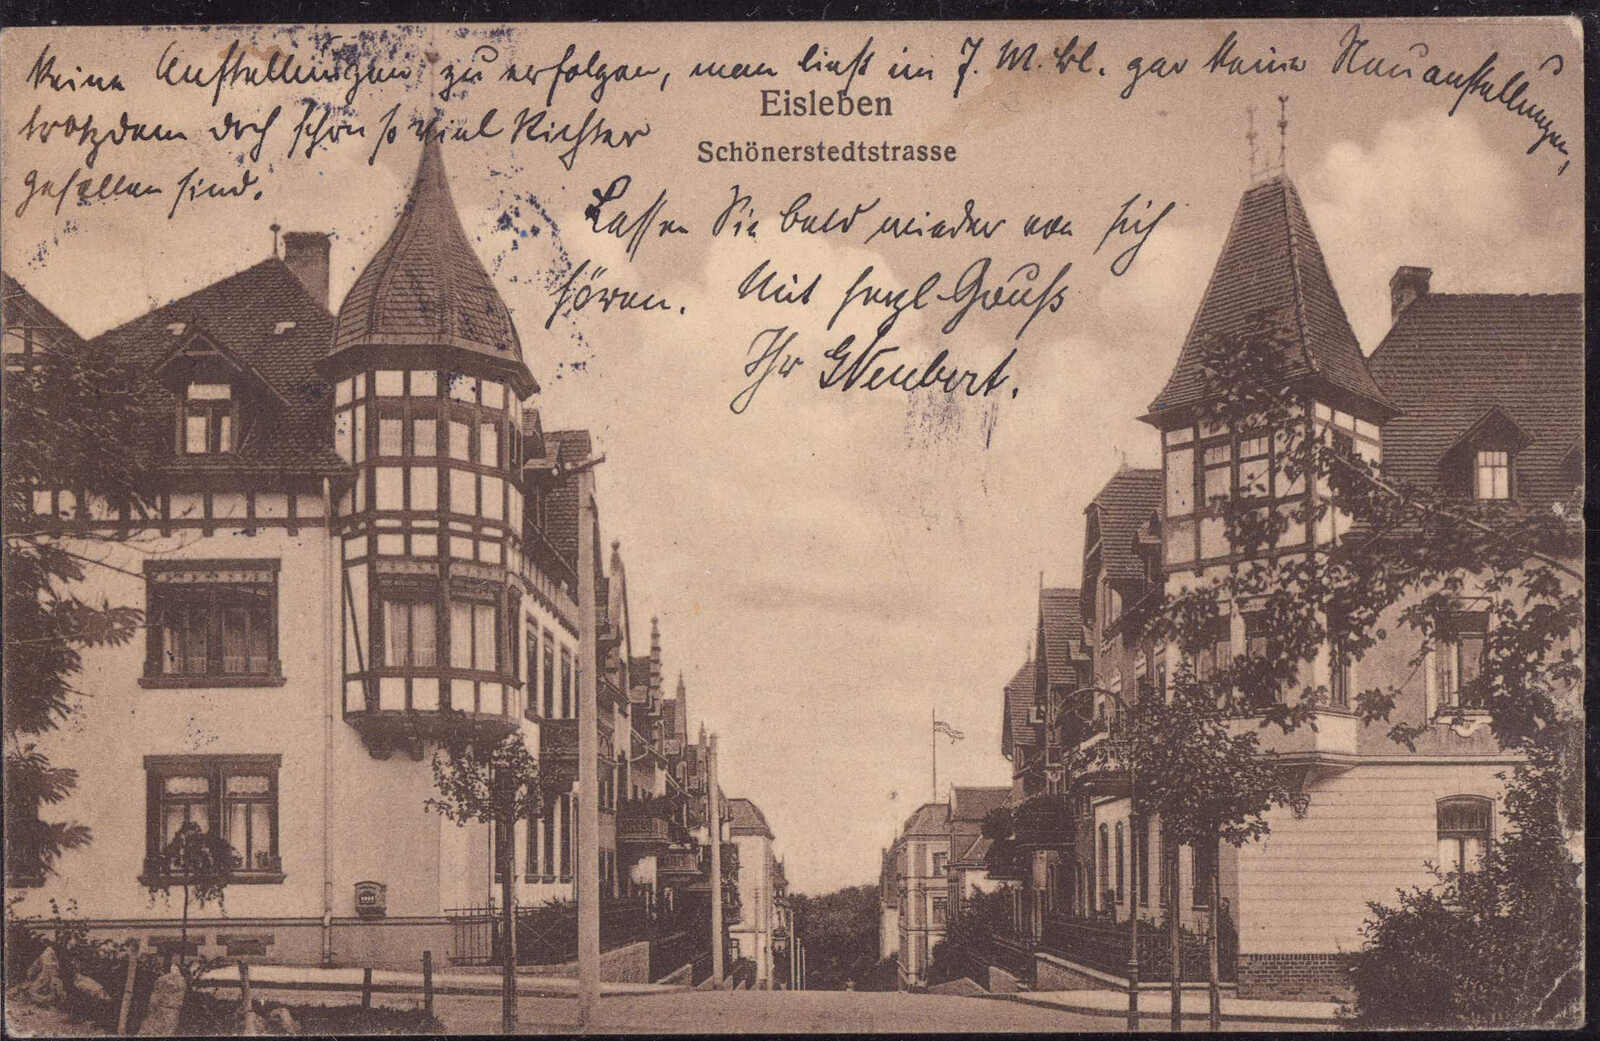 keine Anstellungen zu erfolgen, man liest im J. M. Bl. gar keine Neuanstellungen,
trotzdem doch schon so viel Richter
gefallen sind.
Eisleben
Schönerstedtstrasse
Lassen Sie bald wieder von sich
hören. Mit herzl. Gruß
Ihr GNeubert.